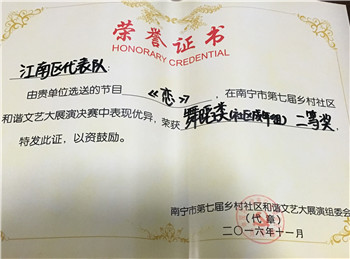 荣誉证书
HONORARY CREDENTIAL
江南区代表队:
由贵单位选送的节目 《恋》 ,在南宁市第七届乡村社区
和谐文艺大展演决赛中表现优异,荣获 舞蹈类(社区成年组)二等奖,
特发此证,以资鼓励。
南宁市第七届乡村社区和谐文艺大展演组委会
(代章)
二〇一六年十一月